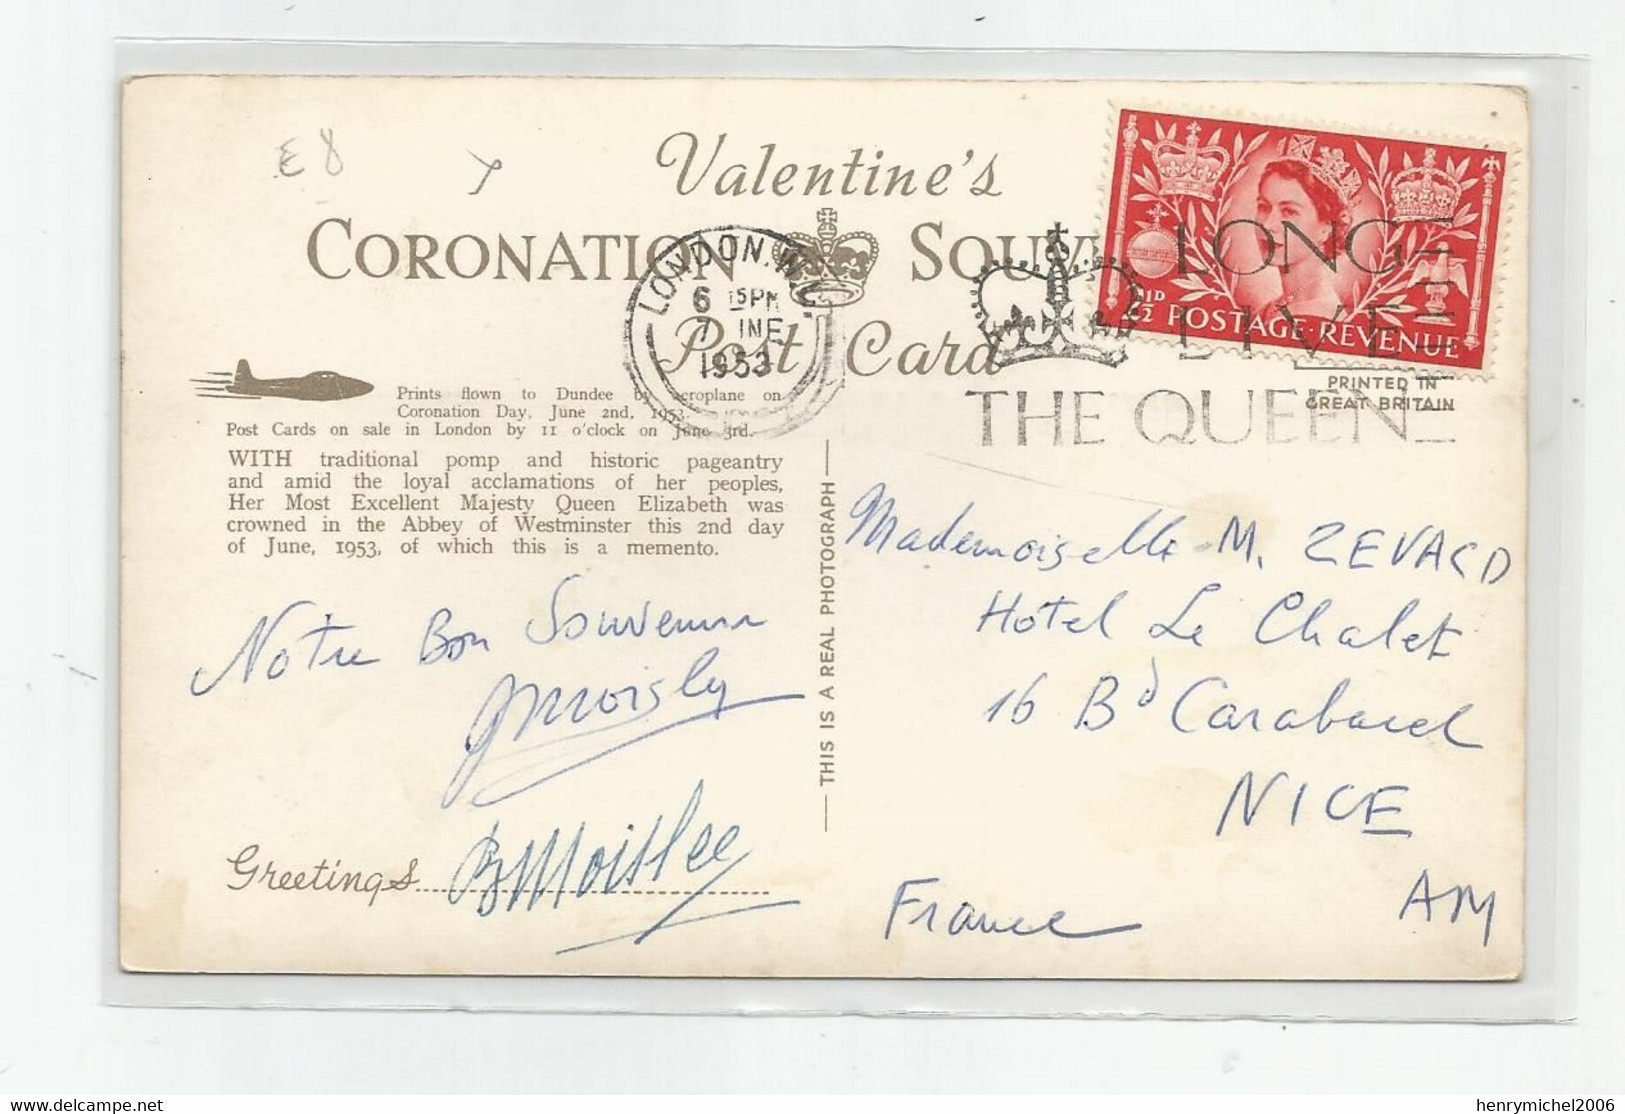 E8
Valentine's
CORONATION SOUV
Post Card
LONDON. W.C.
6 15PM
7 JNE
1953
LONG
LIVE
THE QUEEN
2½D POSTAGE·REVENUE
PRINTED IN
GREAT BRITAIN
Prints flown to Dundee by aeroplane on
Coronation Day, June 2nd, 1953.
Post Cards on sale in London by 11 o'clock on June 3rd.
WITH traditional pomp and historic pageantry
and amid the loyal acclamations of her peoples,
Her Most Excellent Majesty Queen Elizabeth was
crowned in the Abbey of Westminster this 2nd day
of June, 1953, of which this is a memento.
Notre Bon Souvenir
Greetings
THIS IS A REAL PHOTOGRAPH
Mademoiselle M. ZEVACO
Hotel Le Chalet
16 Bd Carabacel
NICE
AM
France
henrymichel2006